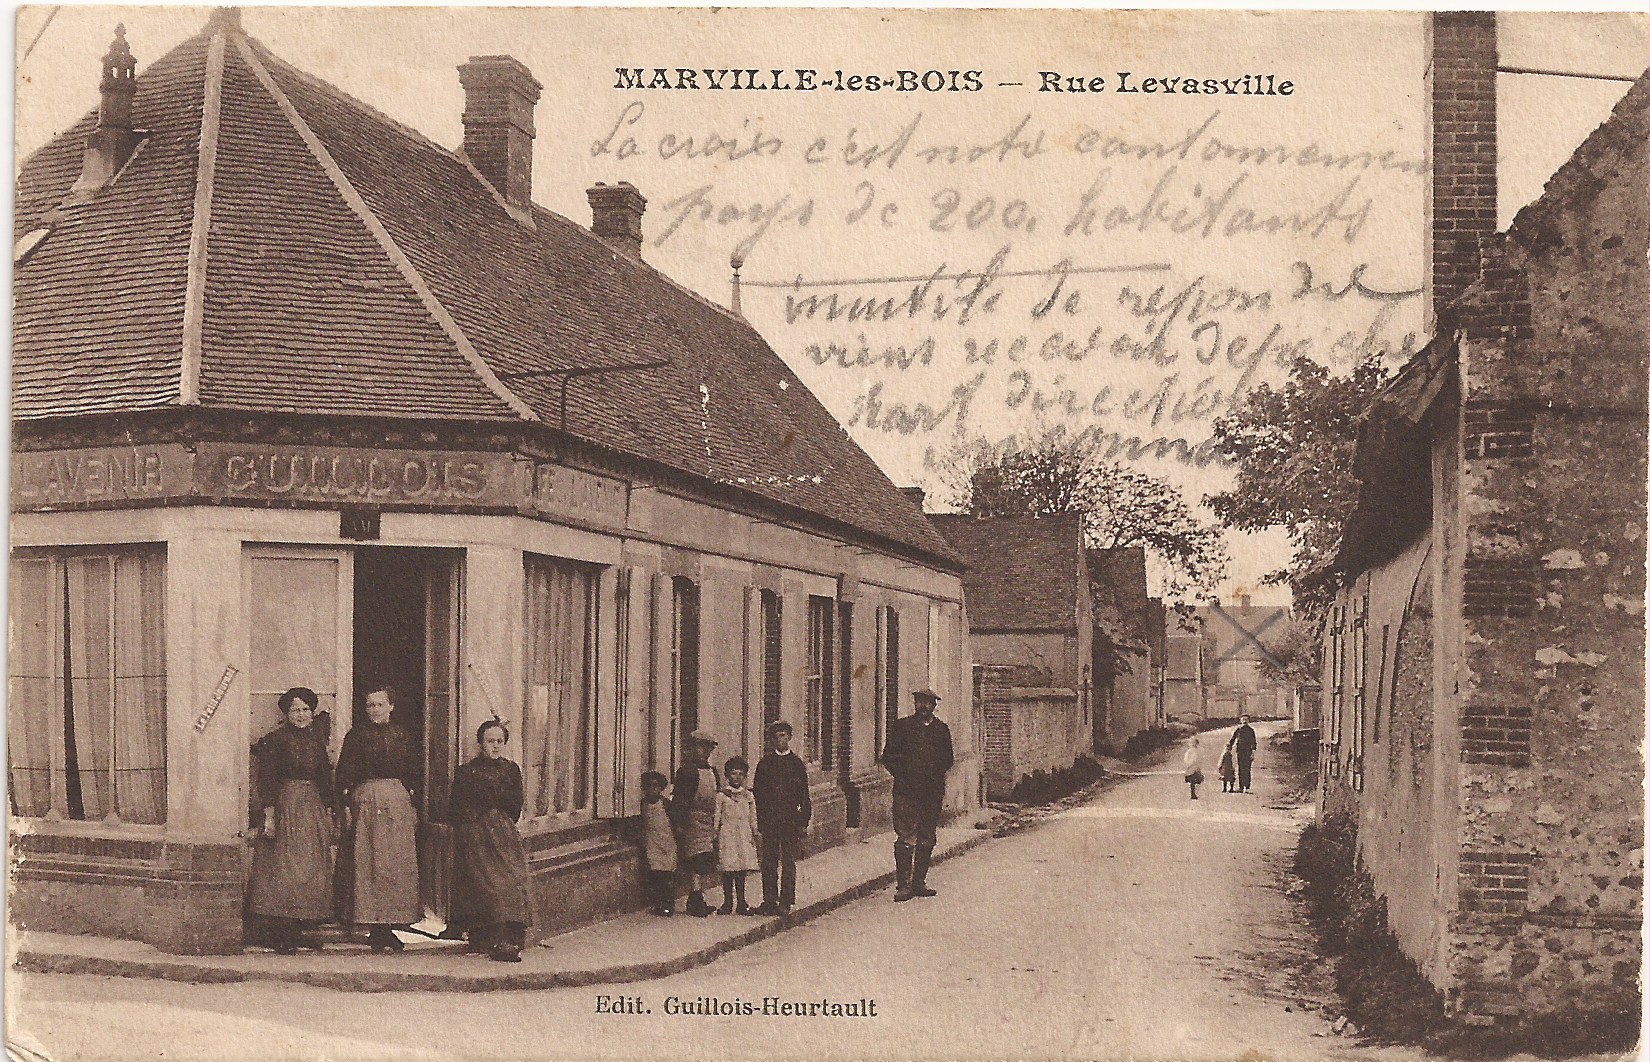 MARVILLE-les-BOIS — Rue Levasville
La croix c'est notre cantonnemen
pays de 200. habitants
inutile de repondre
viens recevoir depeche
part direction
inconnu
L'AVENIR GUILLOIS
Edit. Guillois-Heurtault